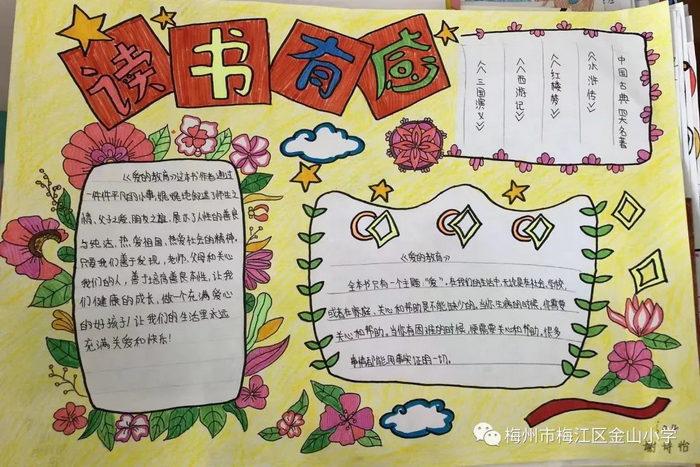 读书有感
中国古典四大名著
《水浒传》
《红楼梦》
《西游记》
《三国演义》
《爱的教育》这本书作者通过
一件件平凡的小事,娓娓地叙述了师生之
情,父子之爱,朋友之谊,展示了人性的善良
与纯洁,热爱祖国,热爱社会的精神。
只要我们善于发现,老师,父母和关心
我们的人,善于培养善良的个性,让我
们健康的成长,做一个充满爱心
的好孩子!让我们的生活里永远
充满关爱和快乐!
《爱的教育》
全本书只有一个主题“爱”,在我们的生活中,无论是在社会,学校,
或者在家庭,关心和帮助是不能缺少的。当你生病的时候,你需要
关心和帮助,当你有困难的时候,便需要关心和帮助,很多
事情都能用事实证明一切。
梅州市梅江区金山小学
谢诗怡